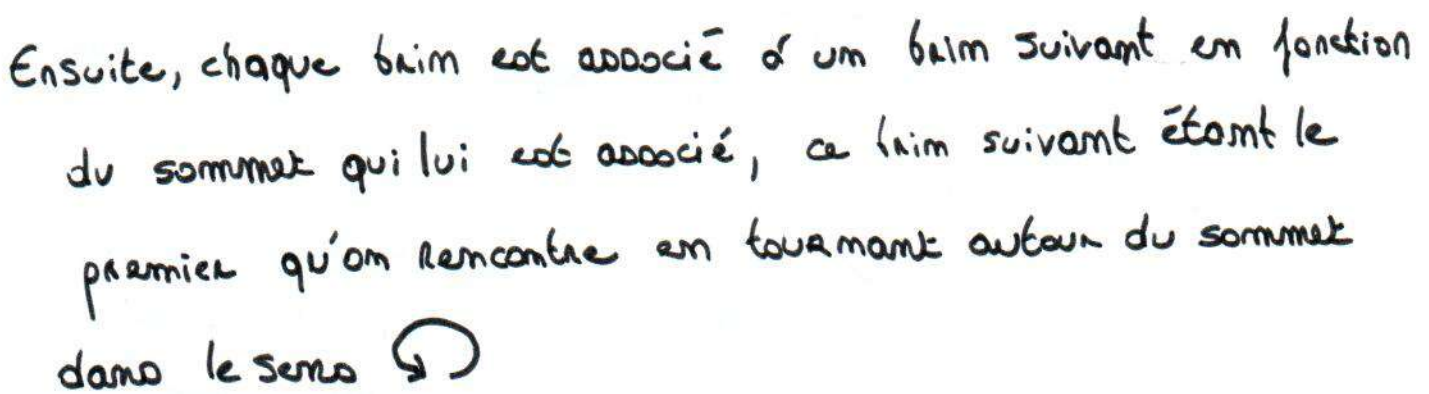 Ensuite, chaque brin est associé à un brin suivant en fonction
du sommet qui lui est associé, ce brin suivant étant le
premier qu'on rencontre en tournant autour du sommet
dans le sens ↺